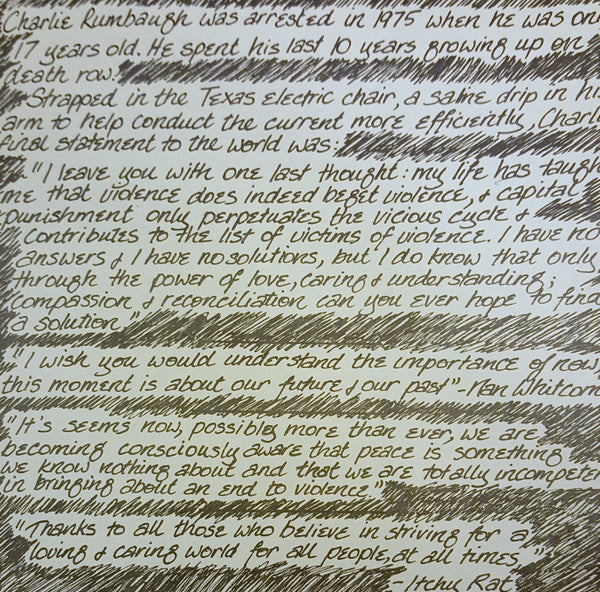 Charlie Rumbaugh was arrested in 1975 when he was on
17 years old. He spent his last 10 years growing up on
death row.
Strapped in the Texas electric chair, a saline drip in hi
arm to help conduct the current more efficiently, Charli
final statement to the world was:
"I leave you with one last thought: my life has taugh
me that violence does indeed beget violence, & capital
punishment only perpetuates the vicious cycle &
contributes to the list of victims of violence. I have no
answers & I have no solutions, but I do know that only
through the power of love, caring & understanding;
compassion & reconciliation can you ever hope to find
a solution."
"I wish you would understand the importance of now,
this moment is about our future & our past"-Nan Whitcom
"It's seems now, possibly more than ever, we are
becoming consciously aware that peace is something
we know nothing about and that we are totally incompete
in bringing about an end to violence."
"Thanks to all those who believe in striving for a
loving & caring world for all people, at all times."
-Itchy Rat